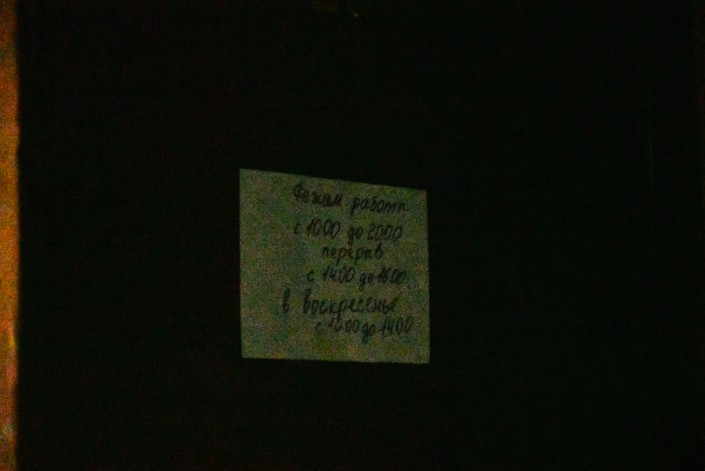 Режим работы
с 1000 до 2000
перерыв
с 1400 до 1600
в воскресенье
с 1000 до 1400